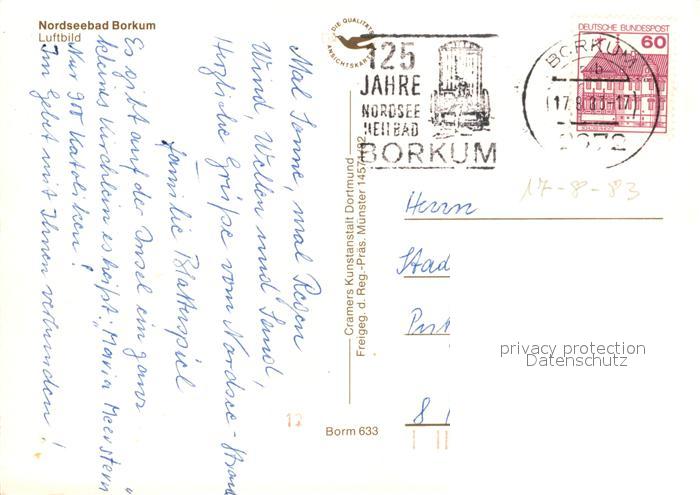 Nordseebad Borkum
Luftbild
DIE QUALITÄTS
ANSICHTSKARTE
125
JAHRE
NORDSEE
HEILBAD
BORKUM
DEUTSCHE BUNDESPOST
60
BORKUM
17.8.83-17
2972
17-8-83
Mal Sonne, mal Regen
Wind, Wolken und Sand,
Herzliche Grüße vom Nordsee-Strand
Familie Blatterspiel
Es gibt auf der Insel ein ganz
kleines Kirchlein es heißt: "Maria Meerstern"
Nur 900 Katoliken!
Im Gebet mit Ihnen verbunden!
Cramers Kunstanstalt Dortmund
Freigeg. d. Reg.-Präs. Münster 1457/82
Herrn
Stad
8
privacy protection
Datenschutz
17
Borm 633